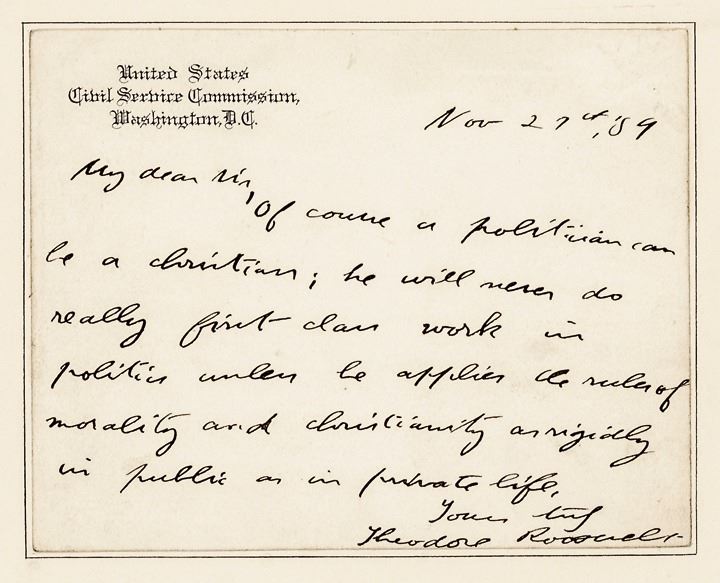 United States
Civil Service Commission,
Washington, D.C.
Nov 27th, '89
My dear sir,
Of course a politician can
be a christian; he will never do
really first class work in
politics unless he applies the rules of
morality and christianity as rigidly
in public as in private life.
Yours truly
Theodore Roosevelt